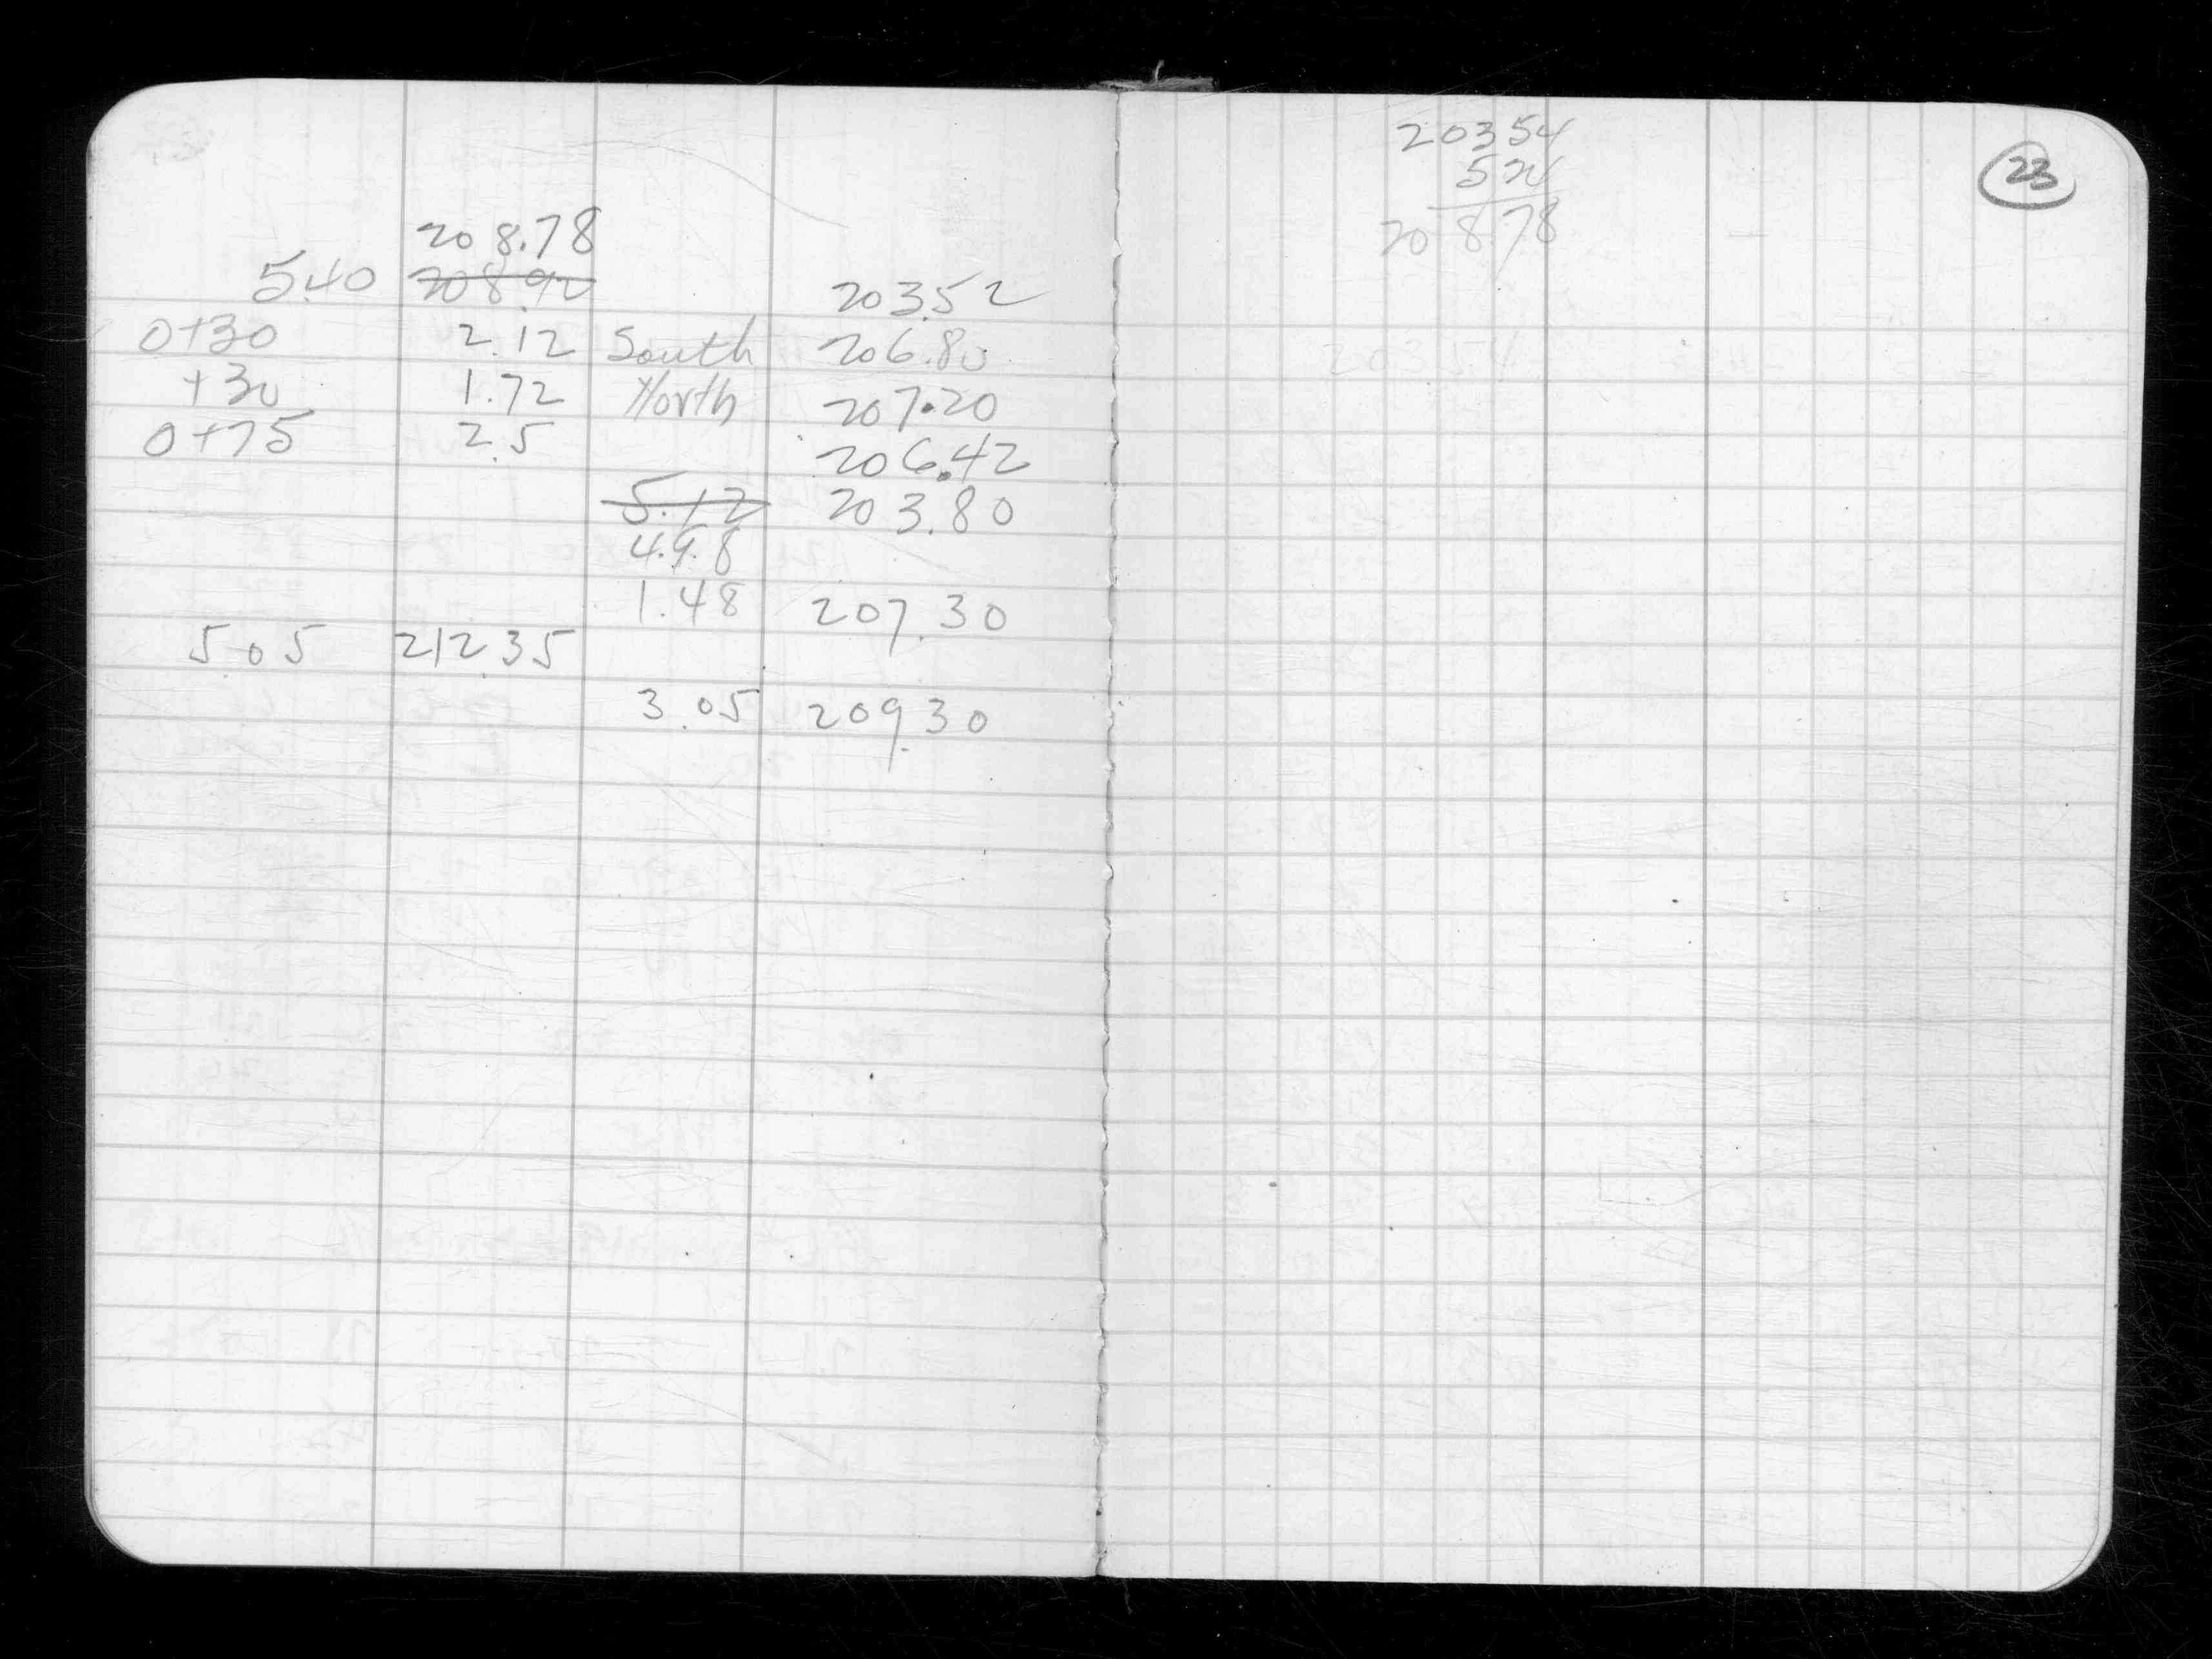 208.78
5.40 208.92 203.52
0+30 2.12 South 206.80
+30 1.72 North 207.20
0+75 2.5 206.42
5.12 203.80
4.98
1.48 207.30
5.05 212.35
3.05 209.30
23
20354
524
20878
20354